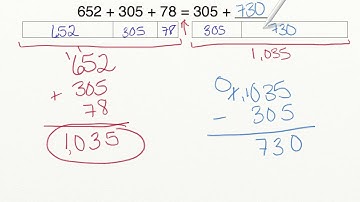 652 + 305 + 78 = 305 + 730
652 305 78 305 730
1,035
652
+ 305
78
1,035
1,035
- 305
730